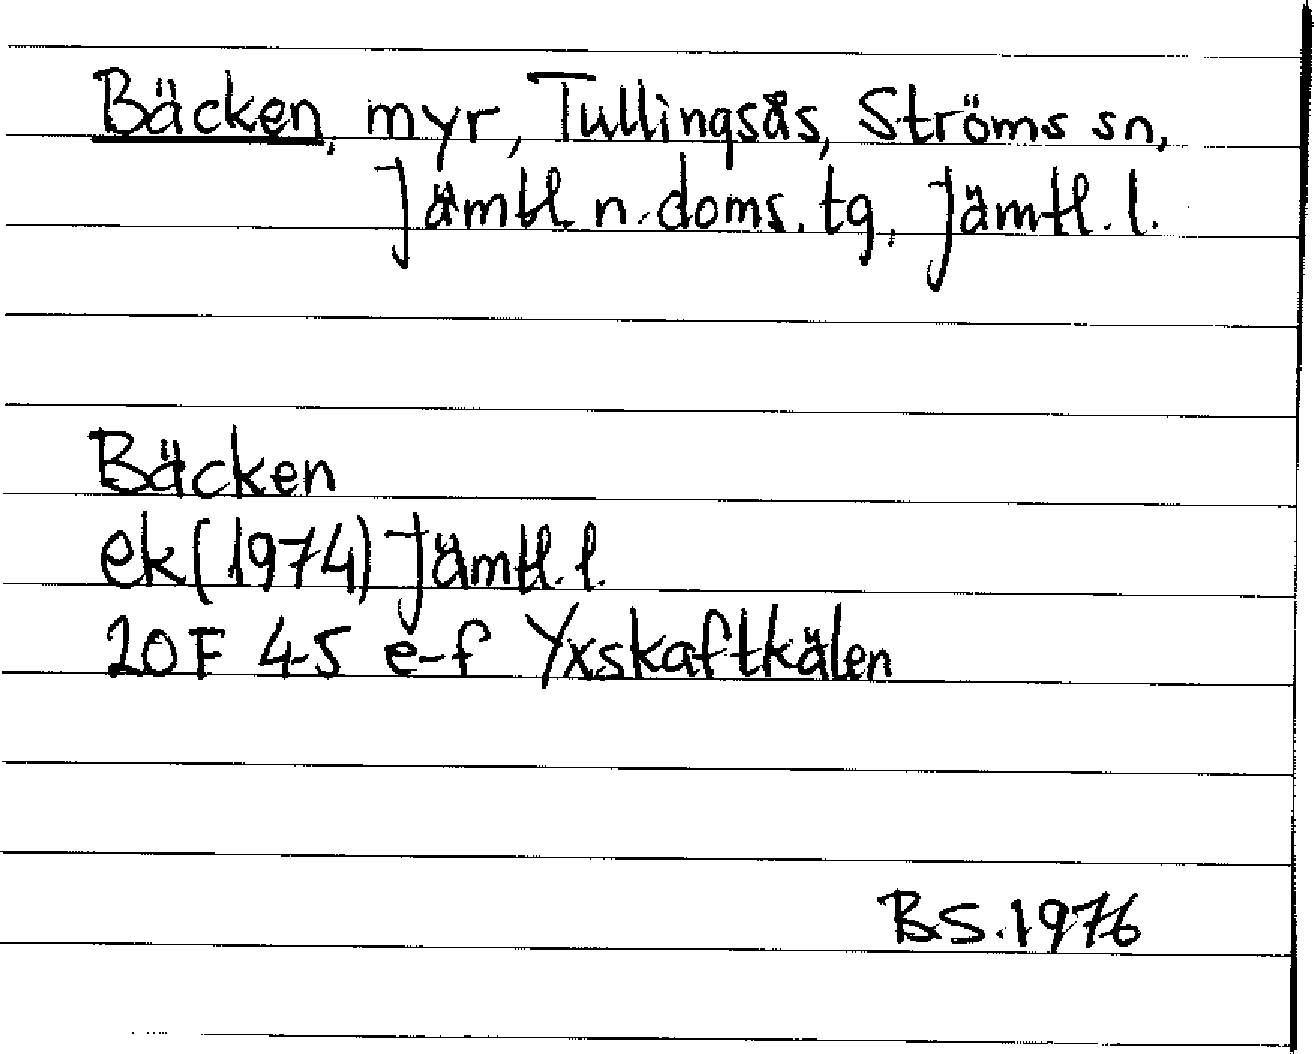 Bäcken, myr, Tullingsås, Ströms sn,
Jämtl. n. doms. tg, Jämtl. l.
Bäcken
ek (1974) Jämtl. l.
20F 4-5 e-f Yxskaftkälen
B.S. 1976